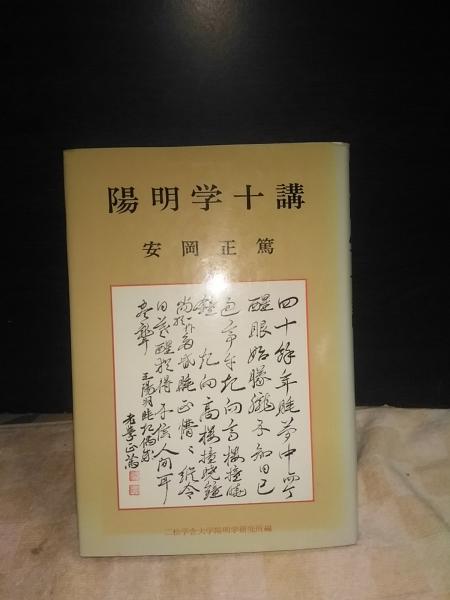 陽明学十講
安岡正篤
四十餘年睡夢中而今
醒眼始朦朧不知日已
過亭午起向高樓撞曉
鐘起向高樓撞曉鐘
尚多昏睡正懵々縱令
日暮醒猶得不信人間耳
盡聾 王陽明睡起偶成
正篤
二松学舎大学陽明学研究所編